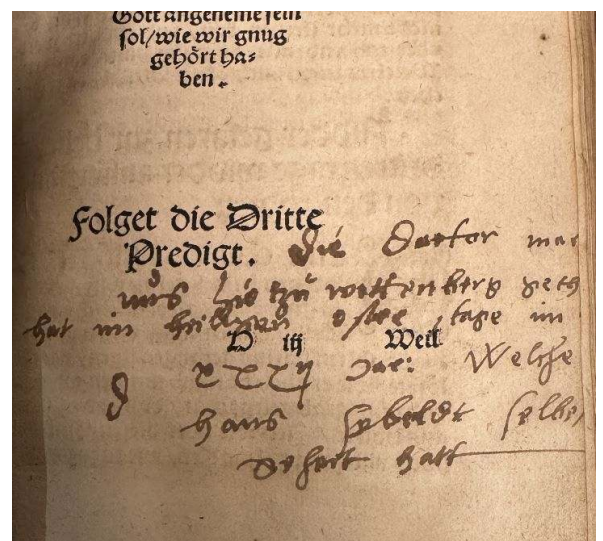 Gott angeneme sein
sol/wie wir gnug
gehört ha⸗
ben.
Folget die Dritte
Predigt. die Doctor mar
uns hie zu wittenberg geth
hat im heiligen oster tage im
D iij Weil
xxxij Jar: Welche
hans selbe
gehort hatt